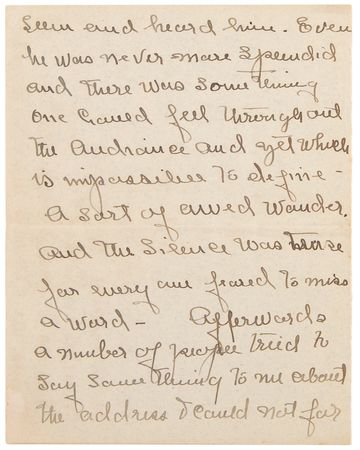 seen and heard him. Even
he was never more splendid
and there was something
one could feel throughout
the audience and yet which
is impossible to define -
a sort of awed wonder.
and the silence was tense
for every one feared to miss
a word - Afterwards
a number of people tried to
say something to me about
the address & could not for